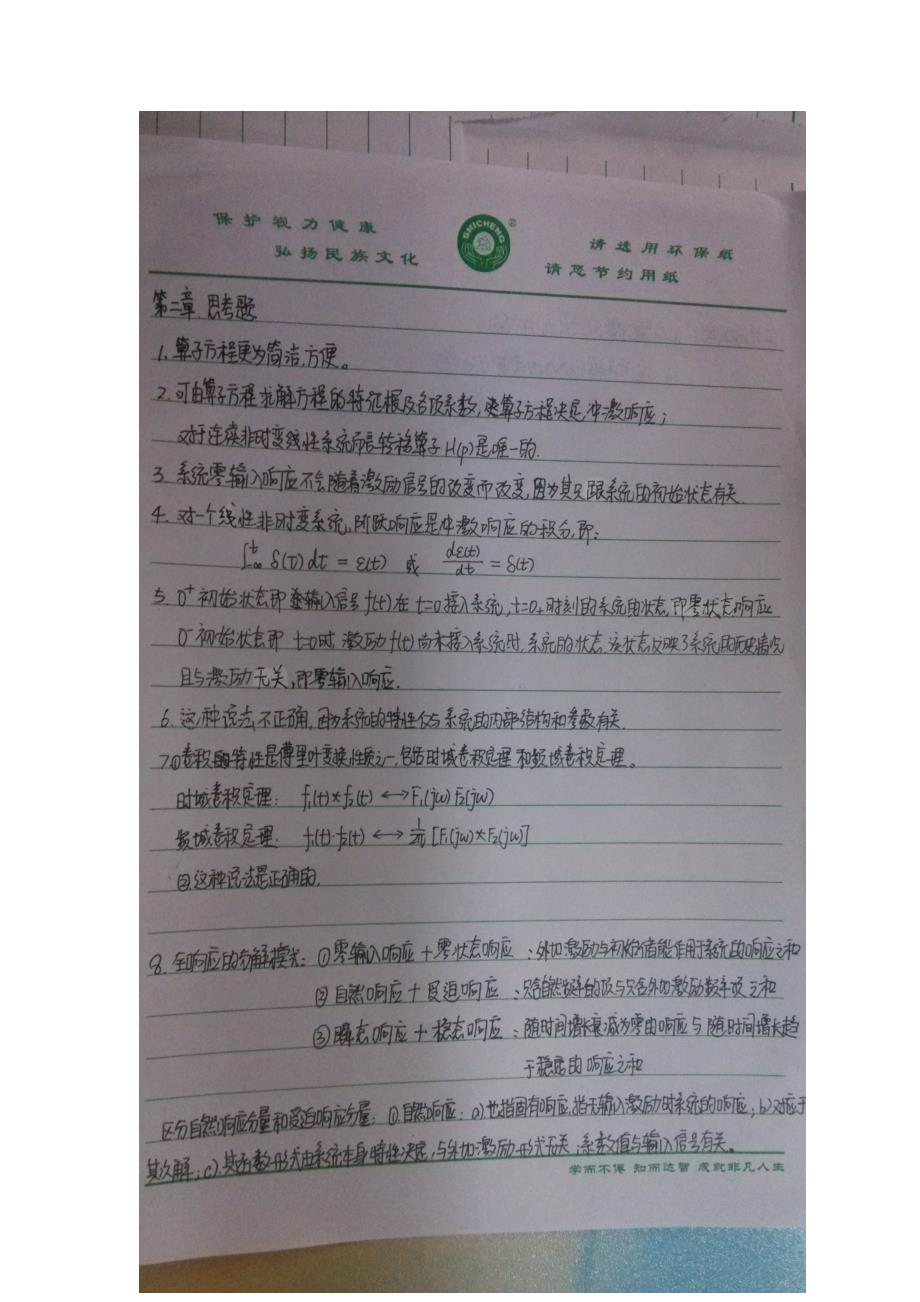 保护视力健康
弘扬民族文化
SHICHENG
®
请选用环保纸
请您节约用纸
第二章.思考题
1.算子方程更为简洁,方便。
2.可由算子方程求解方程的特征根及各项系数,算子方程决定冲激响应;
对于连续非时变线性系统而言转移算子H(p)是唯一的.
3.系统零输入响应不会随着激励信号的改变而改变,因为其只跟系统的初始状态有关.
4.对一个线性非时变系统,阶跃响应是冲激响应的积分,即:
∫_{-∞}^{t} δ(τ)dτ = ε(t) 或 dε(t)/dt = δ(t)
5. 0⁺初始状态即输入信号f(t)在t=0接入系统,t=0₊时刻的系统的状态,即零状态响应
0⁻初始状态即 t=0时,激励f(t)尚未接入系统时,系统的状态.该状态反映了系统的历史情况
且与激励无关,即零输入响应.
6.这种说法不正确,因为系统的特性仅与系统的内部结构和参数有关.
7.①卷积特性是傅里叶变换性质之一,包括时域卷积定理和频域卷积定理。
时域卷积定理: f₁(t)*f₂(t) ⟷ F₁(jω)F₂(jω)
频域卷积定理: f₁(t)·f₂(t) ⟷ 1/2π [F₁(jω)*F₂(jω)]
②这种说法是正确的.
8.全响应的分解模式: ①零输入响应+零状态响应 :外加激励与初始储能作用于系统的响应之和
②自然响应+受迫响应 :只含自然频率的项与只含外加激励频率项之和
③瞬态响应+稳态响应 :随时间增长衰减为零的响应与随时间增长趋
于稳定的响应之和
区分自然响应分量和受迫响应分量: ①.自然响应: a)也指固有响应,指无输入激励时系统的响应; b)对应于
其次解; c)其函数形式由系统本身特性决定,与外加激励形式无关,系数值与输入信号有关。
学而不倦 知而达智 成就非凡人生